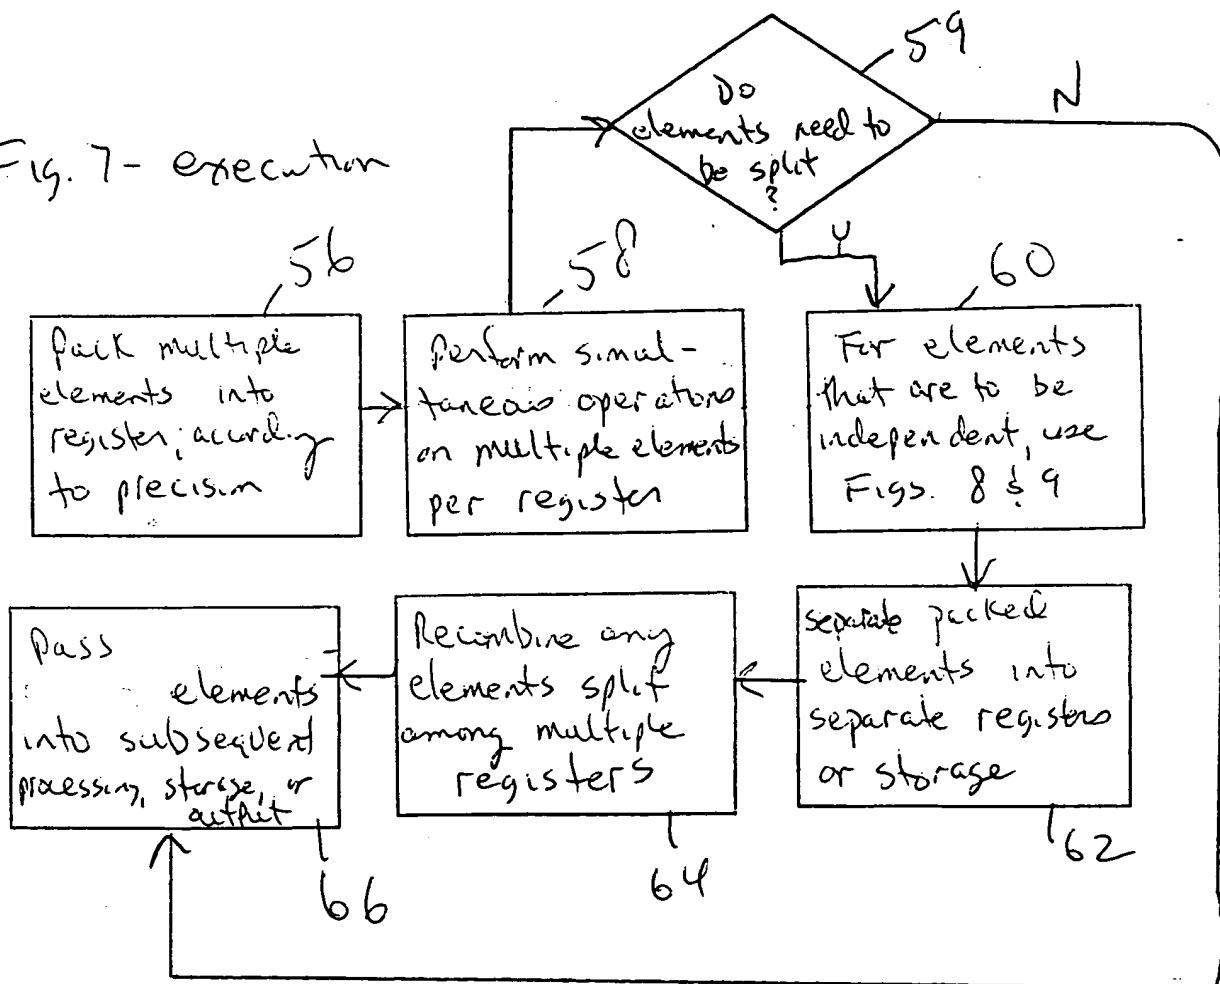 Fig. 7 - execution
56
Pack multiple
elements into
register, according
to precision
58
Perform simul-
taneous operations
on multiple elements
per register
59
Do
elements need to
be split
?
N
Y
60
For elements
that are to be
independent, use
Figs. 8 & 9
separate packed
elements into
separate registers
or storage
62
Recombine any
elements split
among multiple
registers
64
Pass
elements
into subsequent
processing, storage, or
output
66